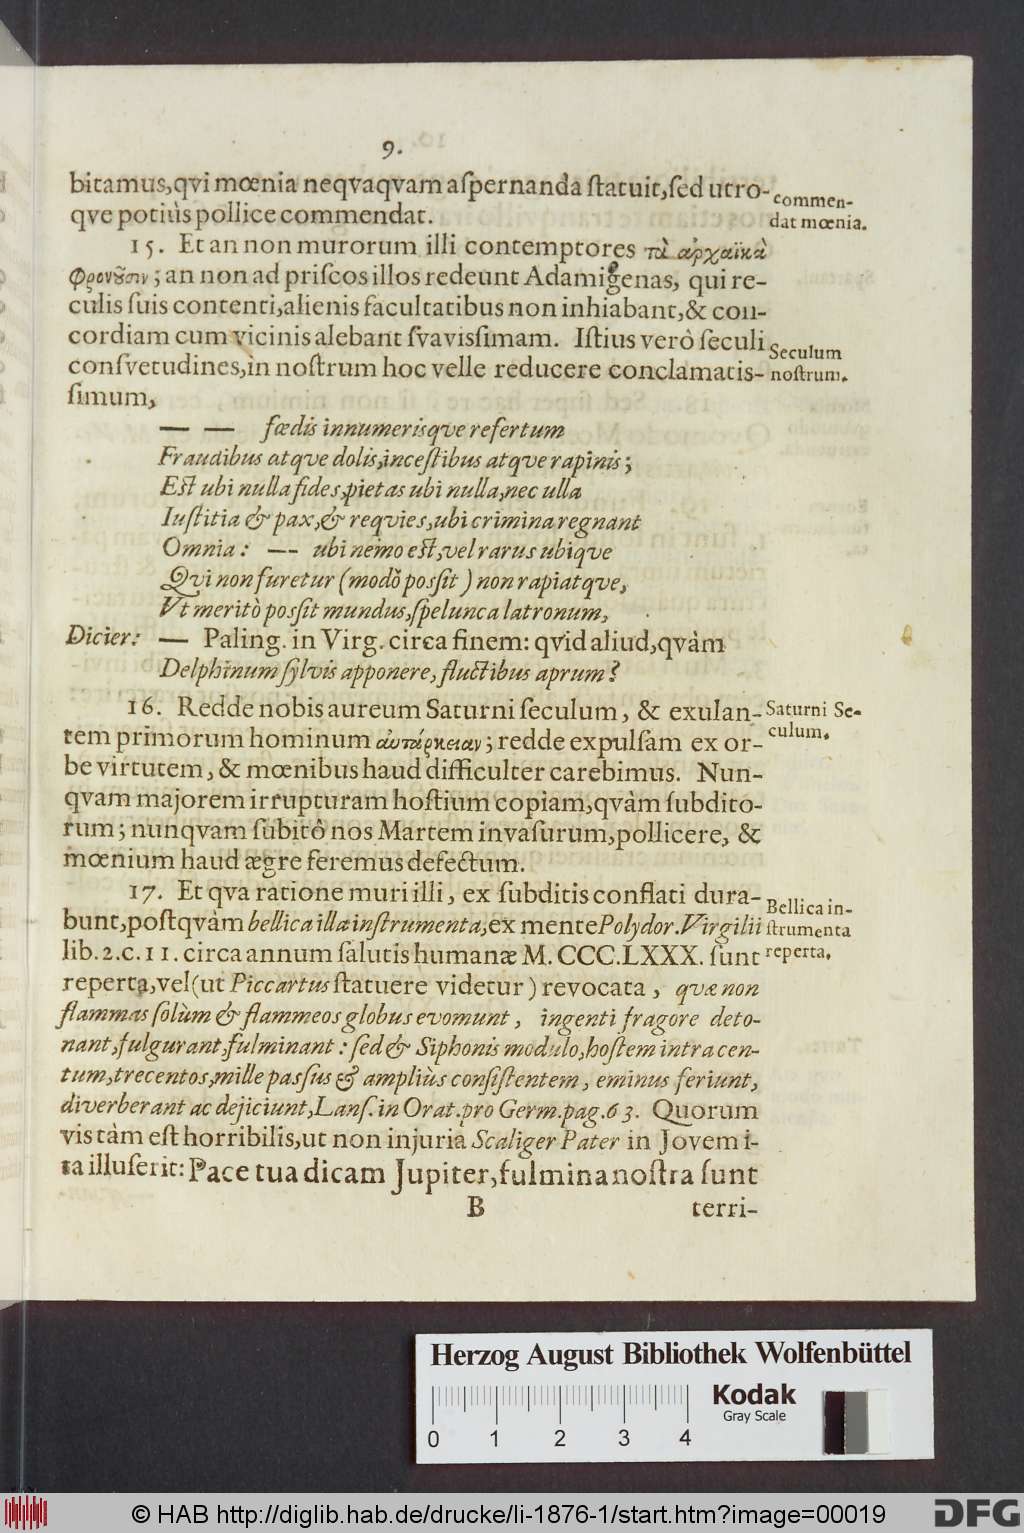 9.
bitamus,qvi mœnia neqvaqvam aſpernanda ſtatuit,ſed utro-
commen-
qve potiùs pollice commendat.
dat mœnia.
15. Et an non murorum illi contemptores τὰ ἀρχαϊκὰ
φρονοῦσιν; an non ad priſcos illos redeunt Adamigenas, qui re-
culis ſuis contenti,alienis facultatibus non inhiabant,& con-
cordiam cum vicinis alebant ſvavisſimam. Iſtius verò ſeculi
Seculum
conſvetudines,in noſtrum hoc velle reducere conclamatis-
noſtrum.
ſimum,
— — fœdis innumerisqve refertum
Fraudibus atqve dolis,inceſtibus atqve rapinis;
Eſt ubi nulla fides,pietas ubi nulla,nec ulla
Iuſtitia & pax,& reqvies,ubi crimina regnant
Omnia: — ubi nemo eſt,vel rarus ubiqve
Qvi non furetur (modò posſit) non rapiatqve,
Vt meritò posſit mundus,ſpelunca latronum,
Dicier: — Paling. in Virg. circa finem: qvid aliud,qvàm
Delphinum ſylvis apponere, fluctibus aprum?
16. Redde nobis aureum Saturni ſeculum, & exulan-
Saturni Se-
tem primorum hominum αὐτάρκειαν; redde expulſam ex or-
culum.
be virtutem, & mœnibus haud difficulter carebimus. Nun-
qvam majorem irrupturam hoſtium copiam,qvàm ſubdito-
rum; nunqvam ſubitò nos Martem invaſurum,pollicere, &
mœnium haud ægre feremus defectum.
17. Et qva ratione muri illi, ex ſubditis conflati dura-
Bellica in-
bunt,poſtqvàm bellica illa inſtrumenta,ex mente Polydor.Virgilii
ſtrumenta
lib. 2. c. 11. circa annum ſalutis humanæ M. CCC.LXXX. ſunt
reperta.
reperta,vel(ut Piccartus ſtatuere videtur) revocata, quæ non
flammas ſolùm & flammeos globus evomunt, ingenti fragore deto-
nant,fulgurant,fulminant: ſed & Siphonis modulo,hoſtem intra cen-
tum,trecentos,mille pasſus & ampliùs conſiſtentem, eminus feriunt,
diverberant ac dejiciunt,Lanſ. in Orat.pro Germ.pag.63. Quorum
vis tàm eſt horribilis,ut non injuriâ Scaliger Pater in Jovem i-
ta illuſerit: Pace tua dicam Jupiter,fulmina noſtra ſunt
B terri-
Herzog August Bibliothek Wolfenbüttel
Kodak
Gray Scale
0 1 2 3 4
© HAB http://diglib.hab.de/drucke/li-1876-1/start.htm?image=00019
DFG